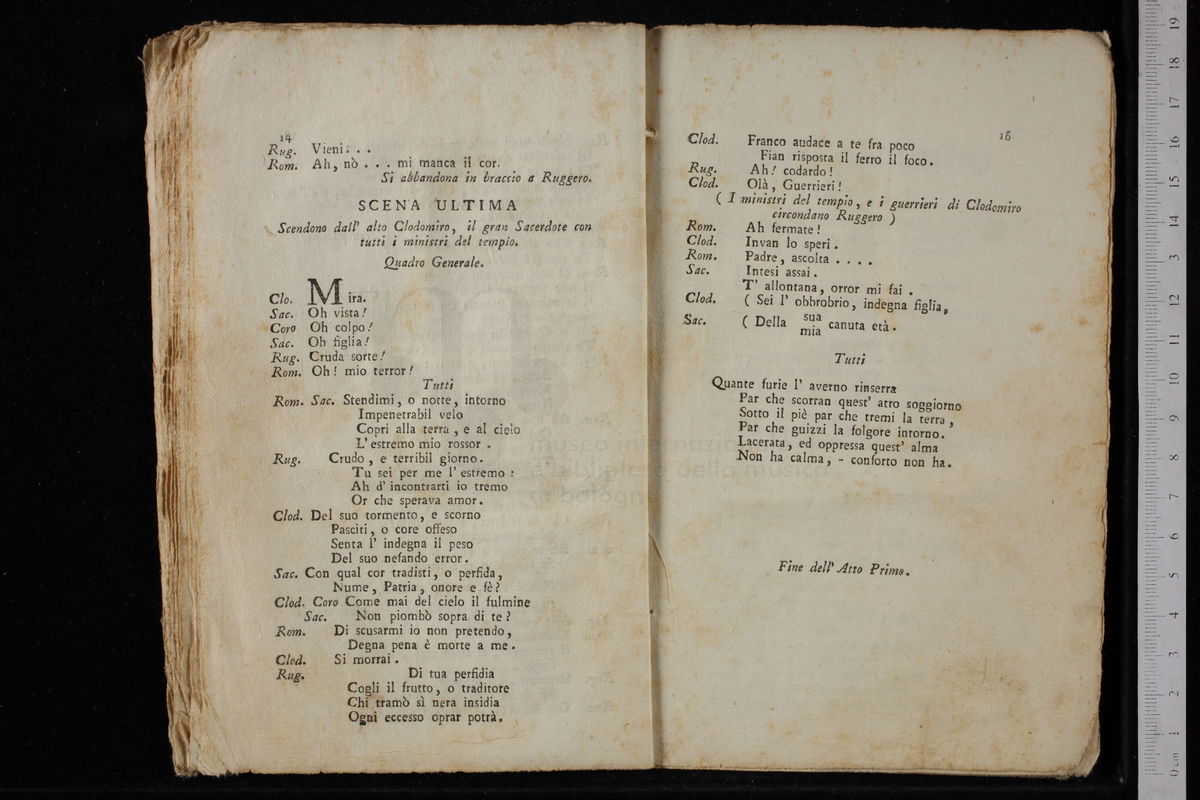 14
Rug. Vieni. . .
Rom. Ah, nò . . . mi manca il cor.
Si abbandona in braccio a Ruggero.
SCENA ULTIMA
Scendono dall' alto Clodomiro, il gran Sacerdote con
tutti i ministri del tempio.
Quadro Generale.
Clo. Mira.
Sac. Oh vista!
Coro Oh colpo!
Sac. Oh figlia!
Rug. Cruda sorte!
Rom. Oh! mio terror!
Tutti
Rom. Sac. Stendimi, o notte, intorno
Impenetrabil velo
Copri alla terra, e al cielo
L' estremo mio rossor.
Rug. Crudo, e terribil giorno.
Tu sei per me l' estremo:
Ah d' incontrarti io tremo
Or che sperava amor.
Clod. Del suo tormento, e scorno
Pasciti, o core offeso
Senta l' indegna il peso
Del suo nefando error.
Sac. Con qual cor tradisti, o perfida,
Nume, Patria, onore e fè?
Clod. Coro Come mai del cielo il fulmine
Sac. Non piombò sopra di te?
Rom. Di scusarmi io non pretendo,
Degna pena è morte a me.
Clod. Si morrai.
Rug. Di tua perfidia
Cogli il frutto, o traditore
Chi tramò sì nera insidia
Ogni eccesso oprar potrà.
15
Clod. Franco audace a te fra poco
Fian risposta il ferro il foco.
Rug. Ah! codardo!
Clod. Olà, Guerrieri!
( I ministri del tempio, e i guerrieri di Clodomiro
circondano Ruggero )
Rom. Ah fermate!
Clod. Invan lo speri.
Rom. Padre, ascolta . . . .
Sac. Intesi assai.
T' allontana, orror mi fai.
Clod. ( Sei l' obbrobrio, indegna figlia,
Sac. ( Della sua mia canuta età.
Tutti
Quante furie l' averno rinserra
Par che scorran quest' atro soggiorno
Sotto il piè par che tremi la terra,
Par che guizzi la folgore intorno.
Lacerata, ed oppressa quest' alma
Non ha calma, - conforto non ha.
Fine dell' Atto Primo.